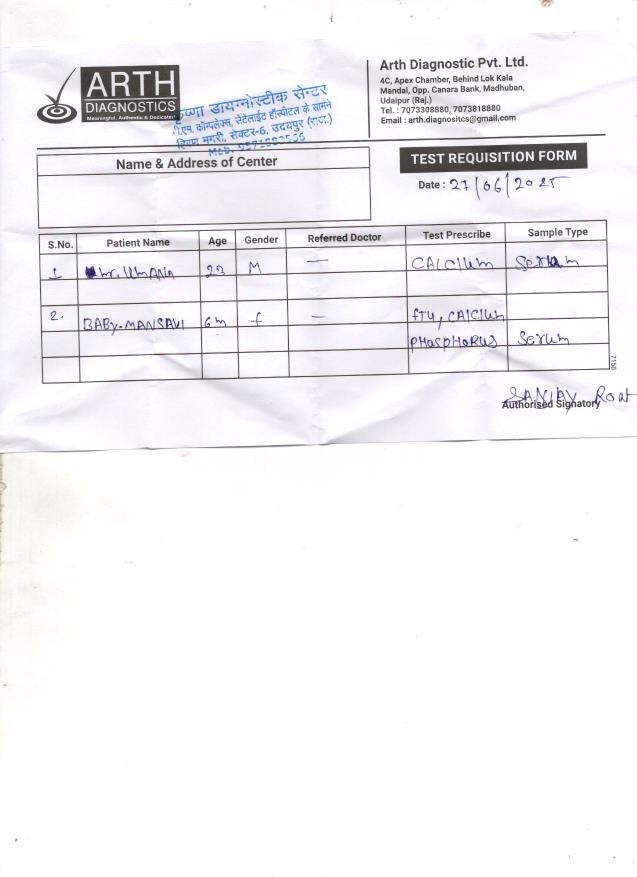 ARTH
DIAGNOSTICS
Meaningful, Authentic & Dedicated
Arth Diagnostic Pvt. Ltd.
4C, Apex Chamber, Behind Lok Kala
Mandal, Opp. Canara Bank, Madhuban,
Udaipur (Raj.)
Tel. : 7073308880, 7073818880
Email : arth.diagnositcs@gmail.com
कृष्णा डायग्नोस्टीक सेन्टर
पी.एम. कॉम्पलेक्स, सेटेलाईट हॉस्पीटल के सामने
हिरण मगरी, सेक्टर-6, उदयपुर (राज.)
Name & Address of Center
TEST REQUISITION FORM
Date : 27/06/2025
S.No. Patient Name Age Gender Referred Doctor Test Prescribe Sample Type
1 Mr. Umania 23 M — CAlCIUm Serum
2. BABy-MANSAVI 6m f — fT4, CAlCIUm
PHOSPHORUS Serum
7158
SANJAY Rout
Authorised Signatory